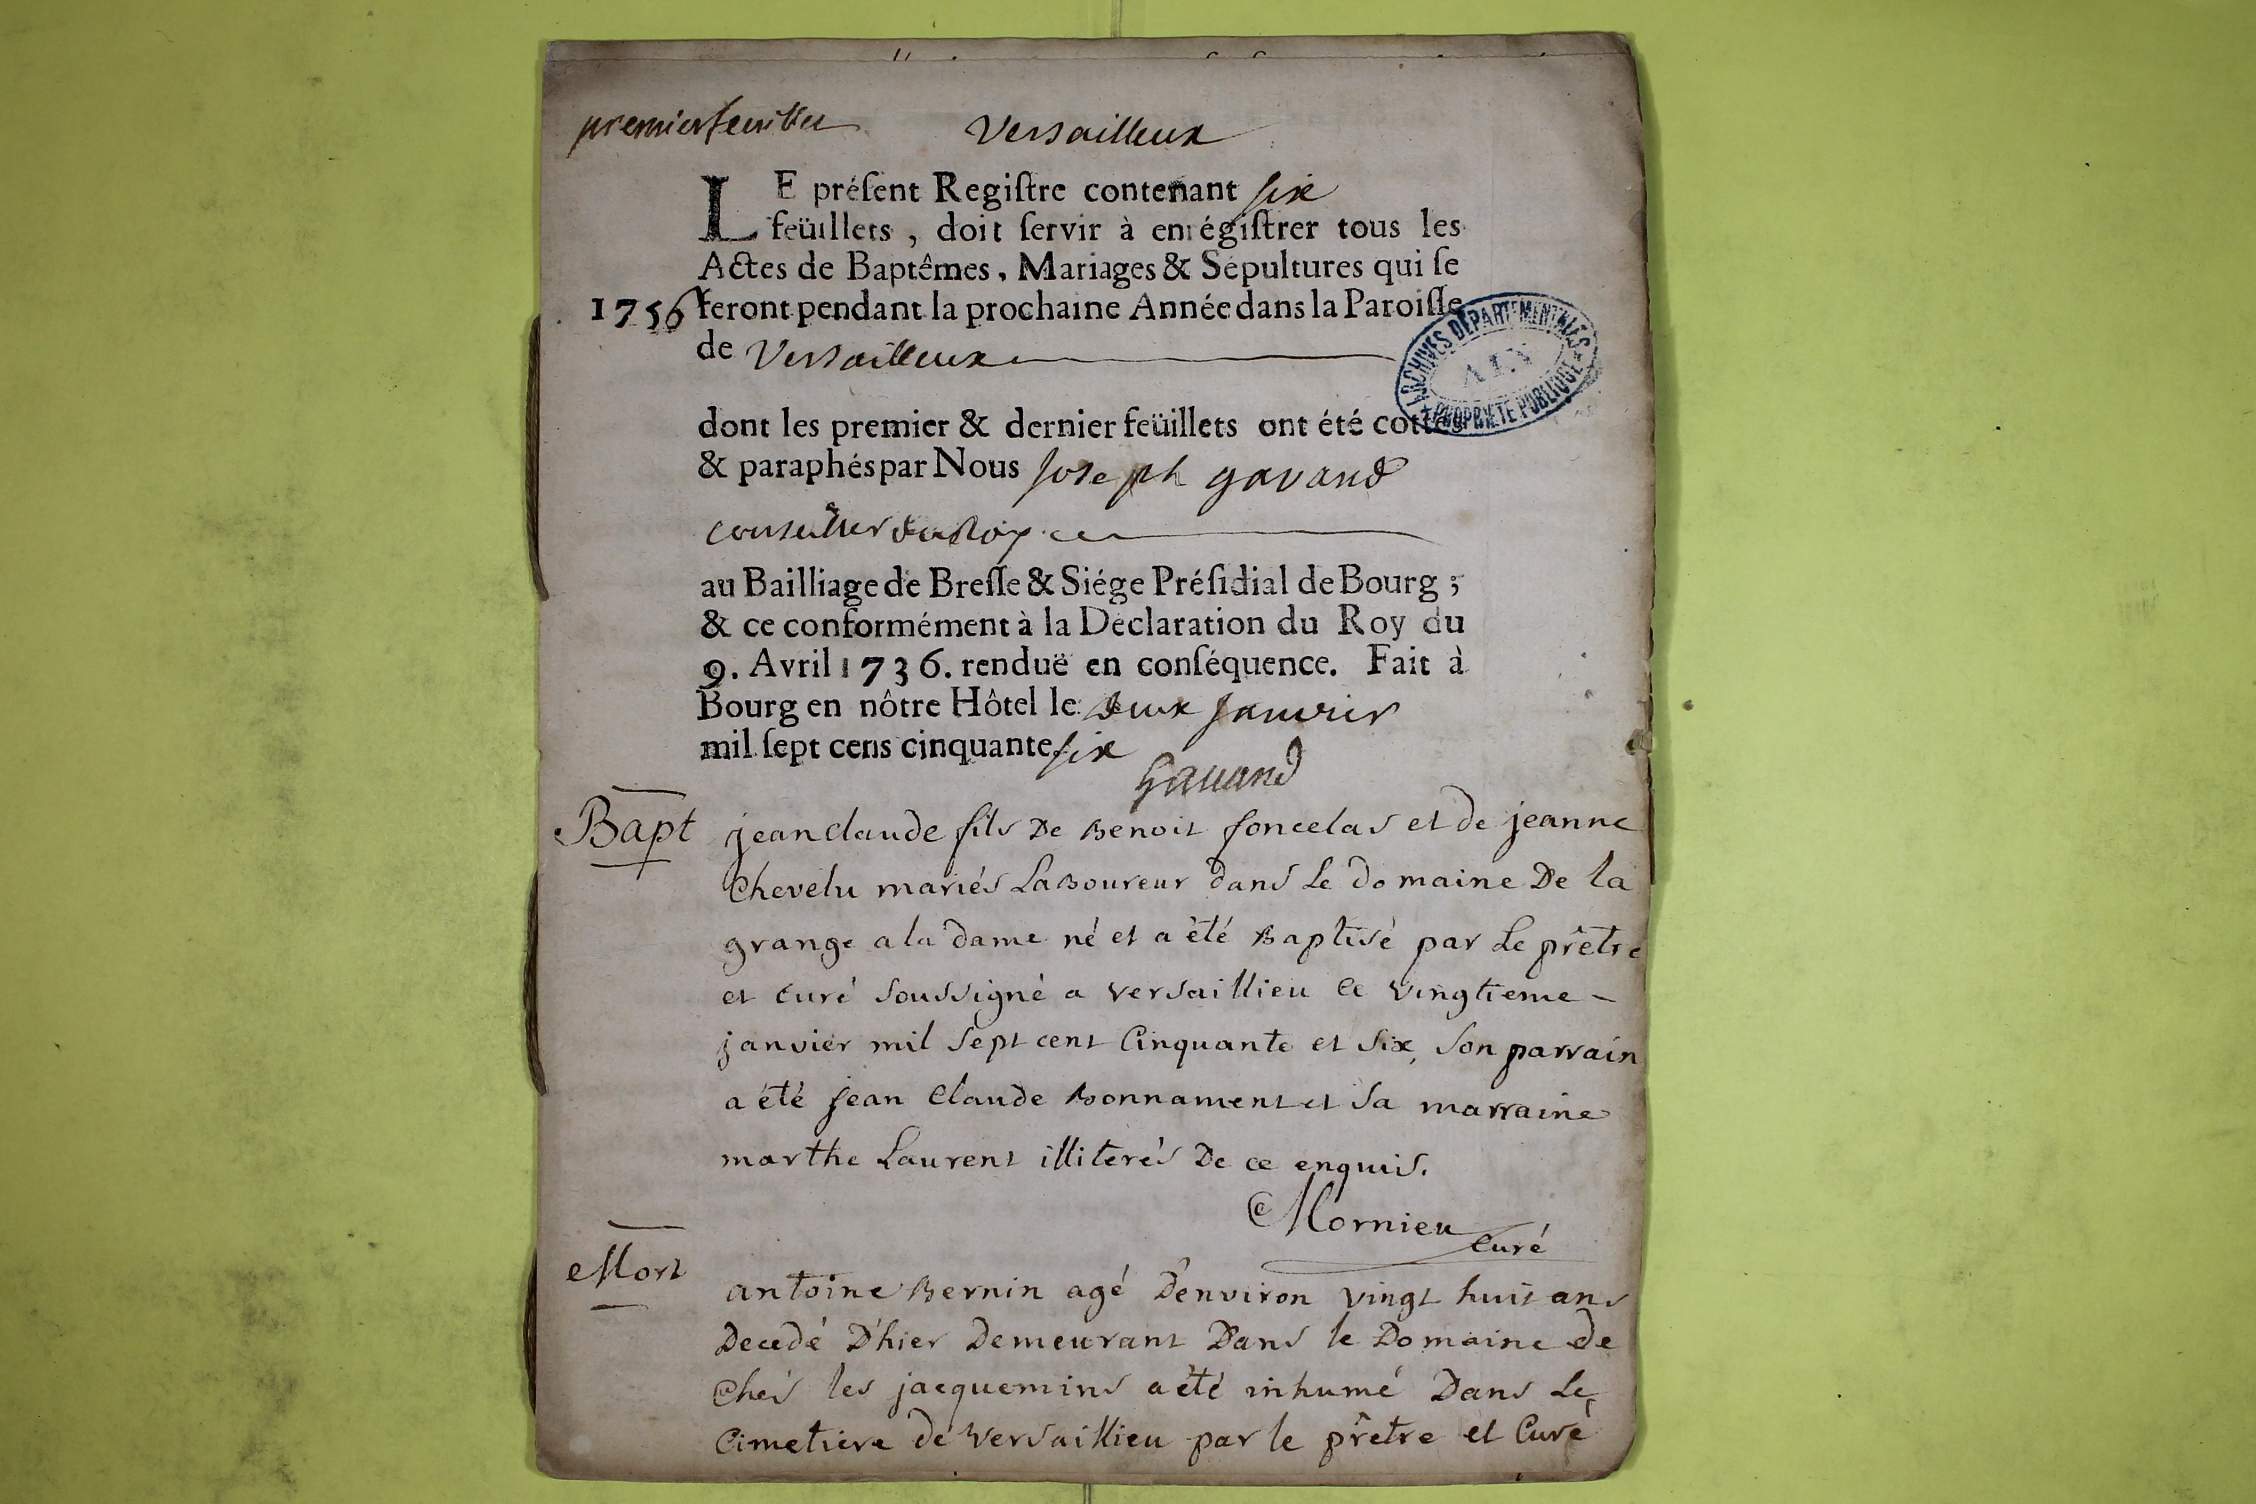 premier feuillet Versailleux
LE préſent Regiſtre contenant ſix
feüillets, doit ſervir à enrégiſtrer tous les
Actes de Baptêmes, Mariages & Sépultures qui ſe
1756 feront pendant la prochaine Année dans la Paroiſſe
de Versailleux
ARCHIVES DÉPARTEMENTALES
AIN
PROPRIÉTÉ PUBLIQUE
dont les premier & dernier feüillets ont été cottés
& paraphés par Nous Joseph gavand
conseiller du Roy
au Bailliage de Breſſe & Siége Préſidial de Bourg ;
& ce conformément à la Déclaration du Roy du
9. Avril 1736. renduë en conſéquence. Fait à
Bourg en nôtre Hôtel le deux janvier
mil ſept cens cinquante ſix
Gauand
Bapt jean claude fils De Benoit foncelas et de jeanne
Chevelu mariés Laboureur dans Le domaine De la
grange a la dame né et a été Baptisé par Le prêtre
et curé soussigné a versaillieu ce vingtieme -
janvier mil sept cent Cinquante et six, son parrain
a été jean Claude Bonnament et sa marraine
marthe Laurent illiterés De ce enquis.
Mornieu curé
Mort
antoine Bernin agé D'environ vingt huit ans
Decedé D'hier Demeurant Dans le Domaine de
Chés les jacquemins a été inhumé Dans Le
Cimetiere de versaillieu par le prêtre et Curé